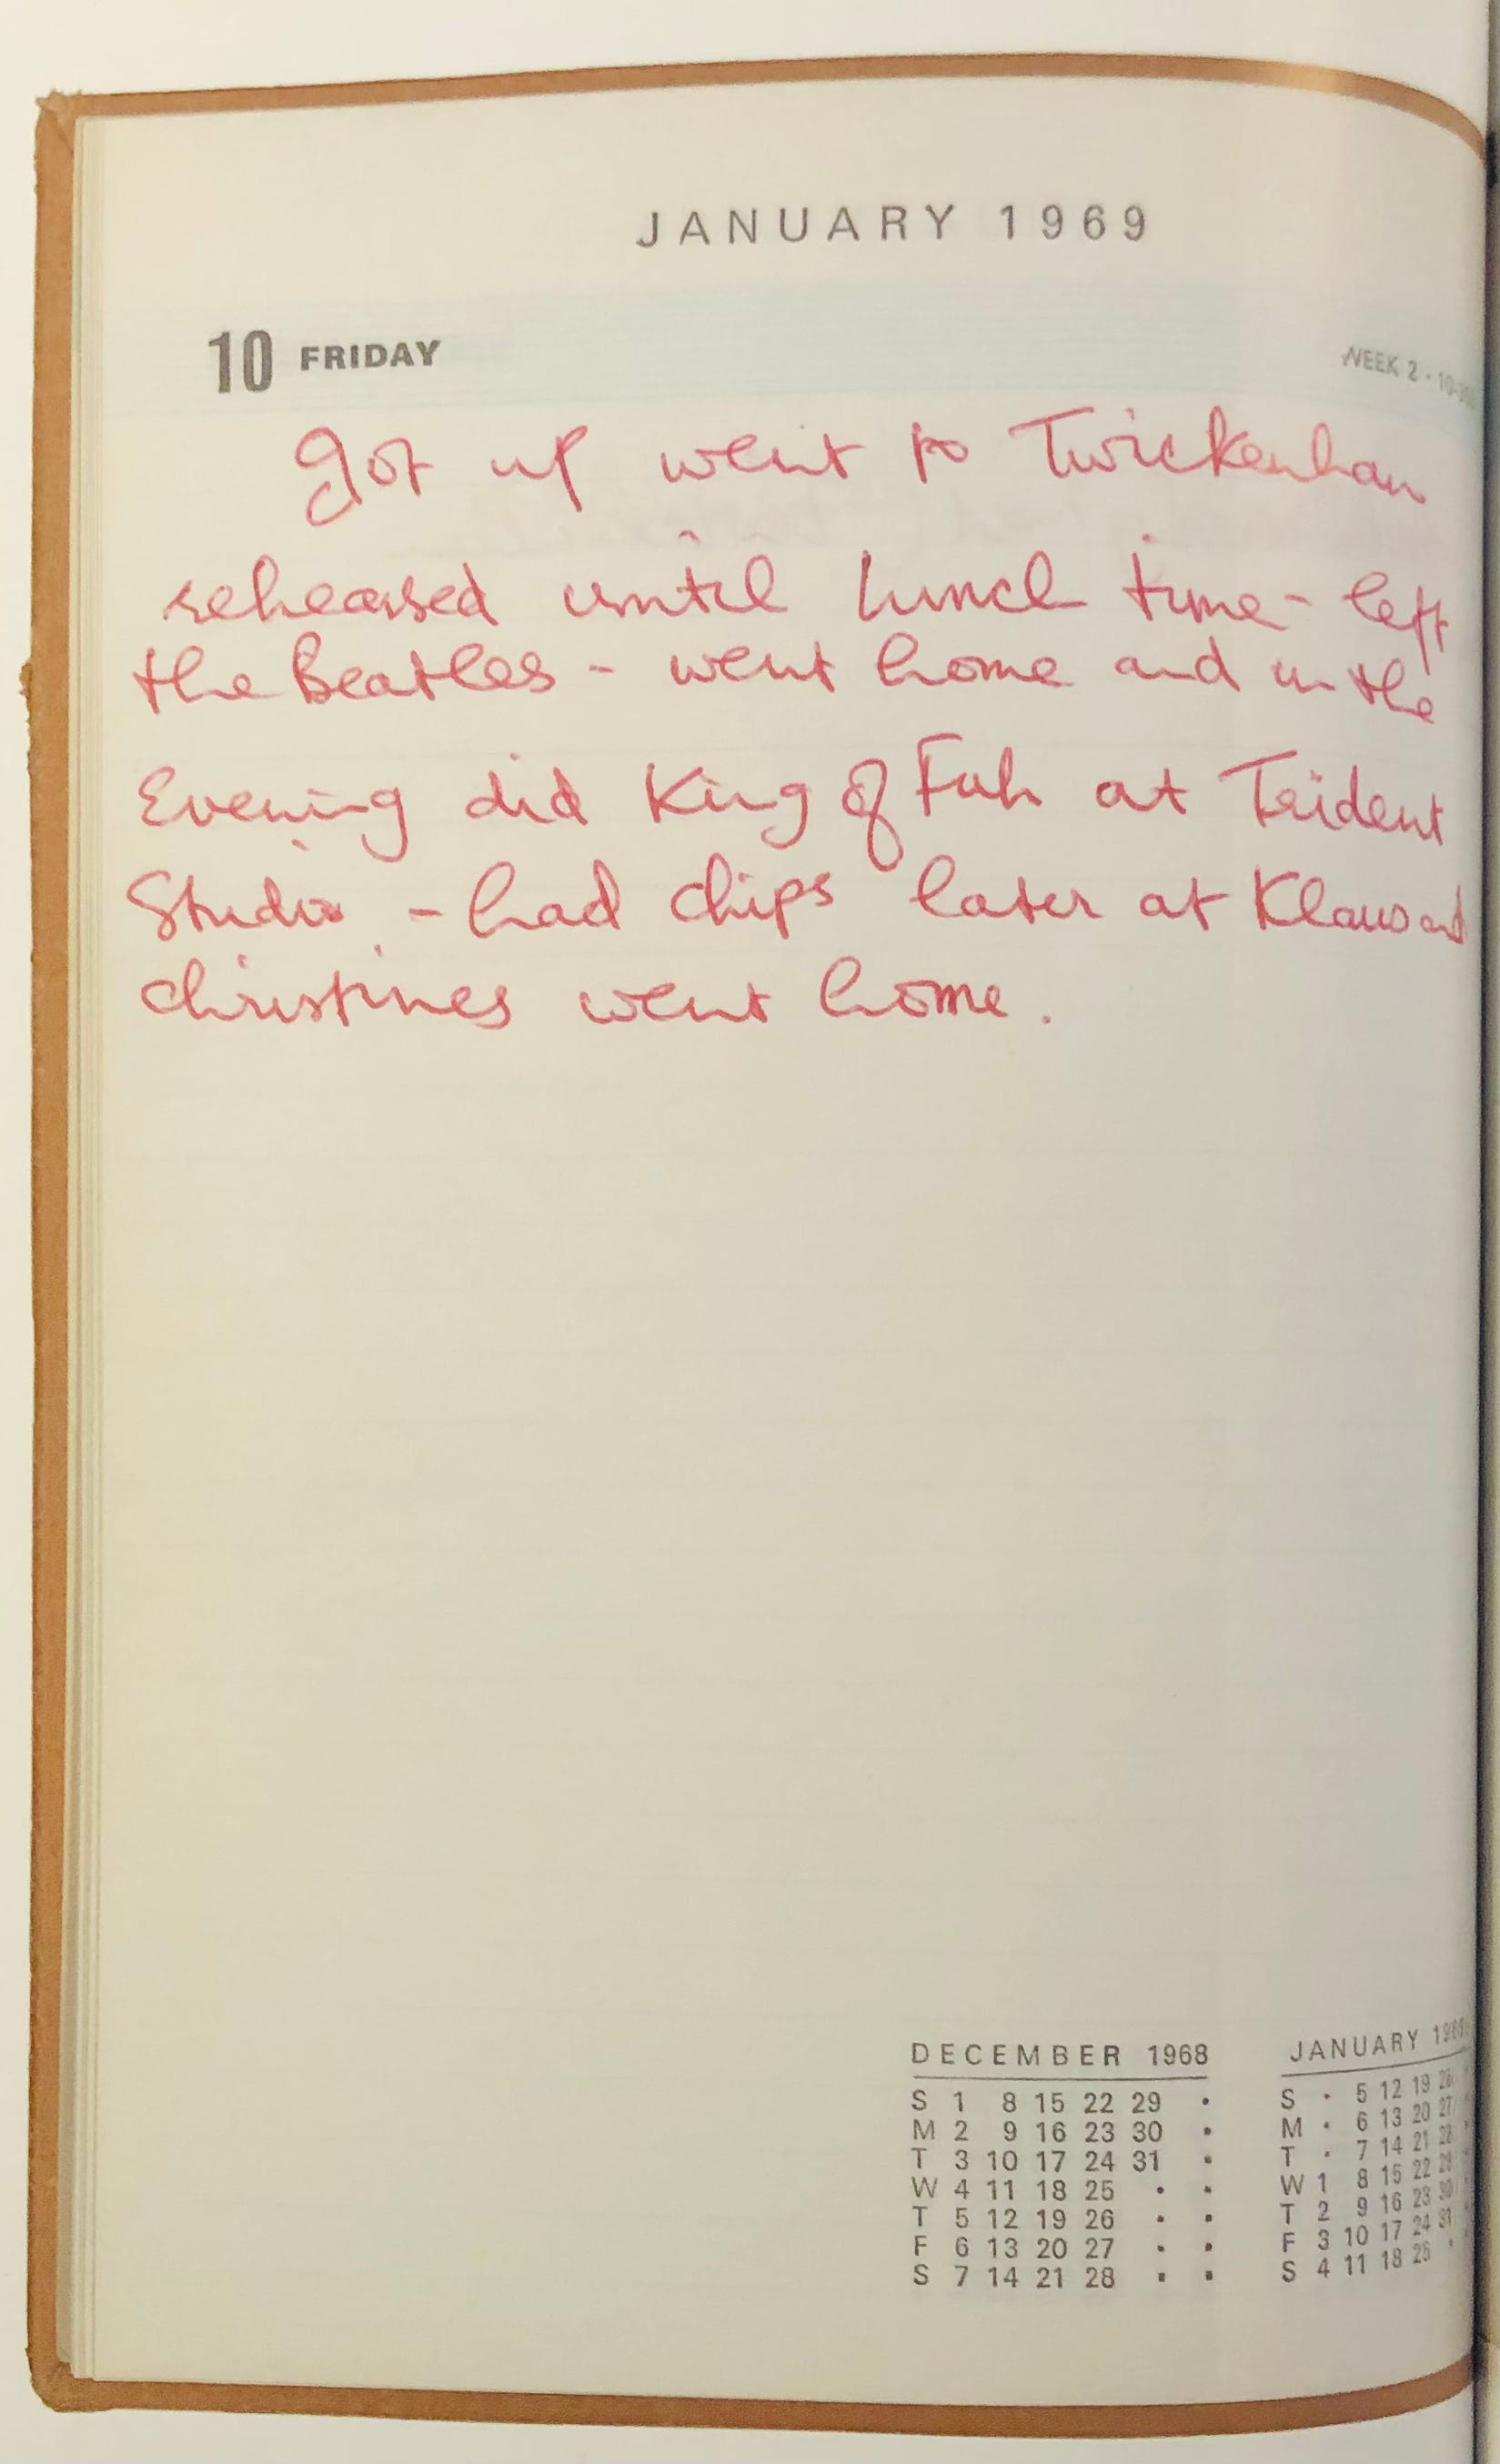 JANUARY 1969
10 FRIDAY
WEEK 2 · 10-
got up went to Twickenham
rehearsed until lunch time - left
the Beatles - went home and in the
Evening did King of Fuh at Trident
Studio - had chips later at Klaus and
christines went home.
DECEMBER 1968
S 1 8 15 22 29 ·
M 2 9 16 23 30 ·
T 3 10 17 24 31 ·
W 4 11 18 25 · ·
T 5 12 19 26 · ·
F 6 13 20 27 · ·
S 7 14 21 28 · ·
JANUARY 1969
S · 5 12 19 26
M · 6 13 20 27
T · 7 14 21 28
W 1 8 15 22 29
T 2 9 16 23 30
F 3 10 17 24 31
S 4 11 18 25 ·